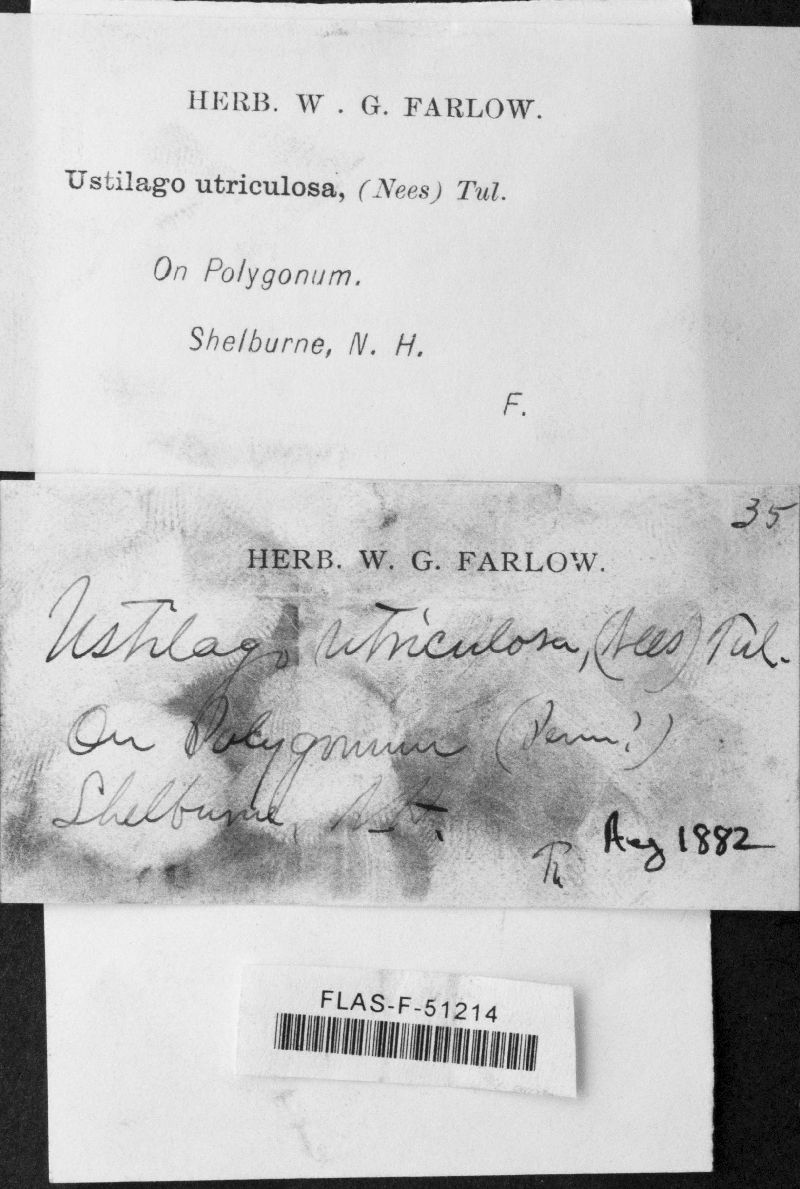 HERB. W. G. FARLOW.
Ustilago utriculosa, (Nees) Tul.
On Polygonum.
Shelburne, N. H.
F.
35
HERB. W. G. FARLOW.
Ustilago utriculosa, (Nees) Tul.
On Polygonum (Penn?)
Shelburne, N. H.
Aug 1882
FLAS-F-51214